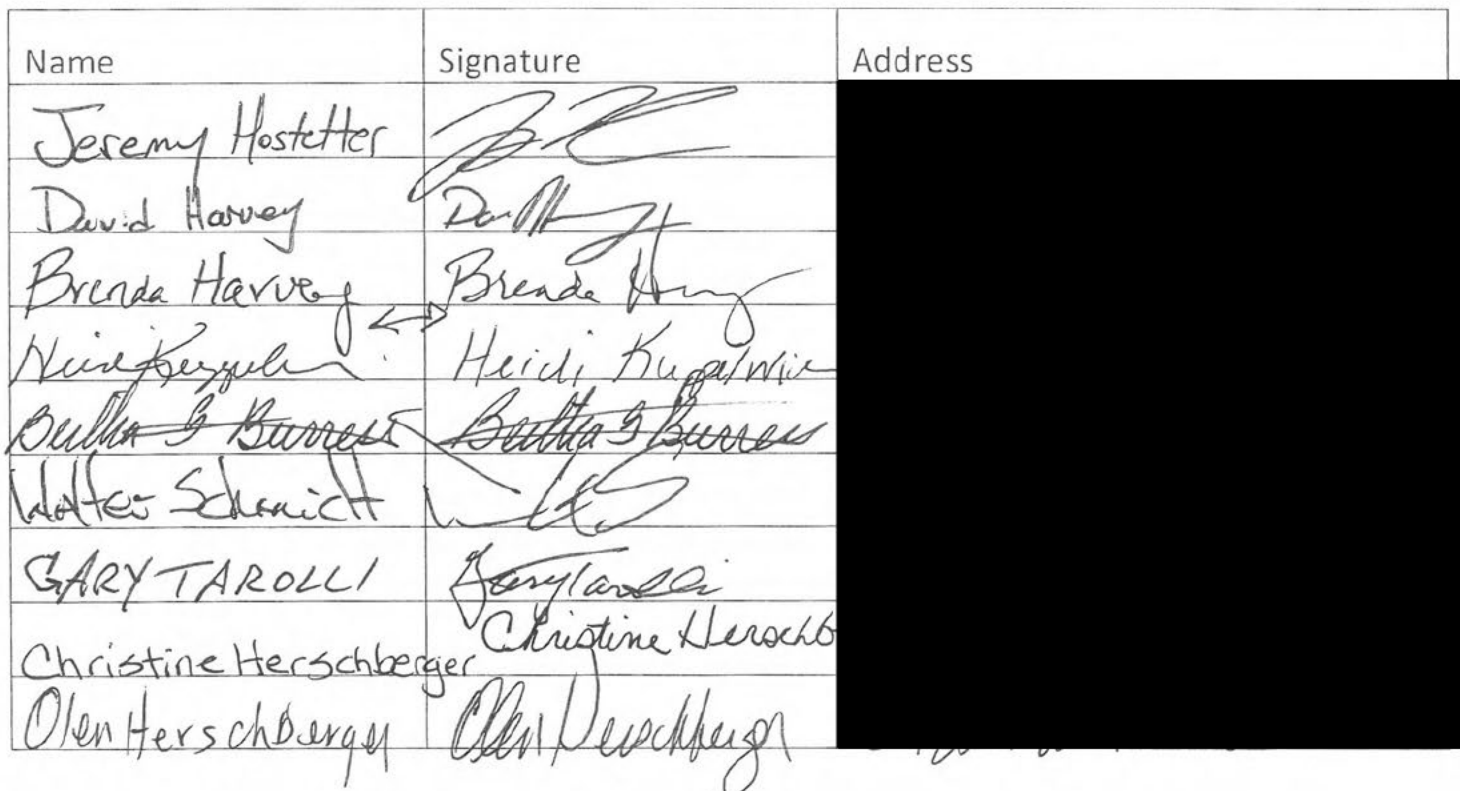 Name Signature Address
Jeremy Hostetter
David Harvey
Brenda Harvey Brenda
Heidi
Bertha G Burress Bertha G Burress
Walter Schmidt
GARY TAROLLI Gary Tarolli
Christine Herschberger Christine Herschb
Olen Herschberger Olen Herschberger